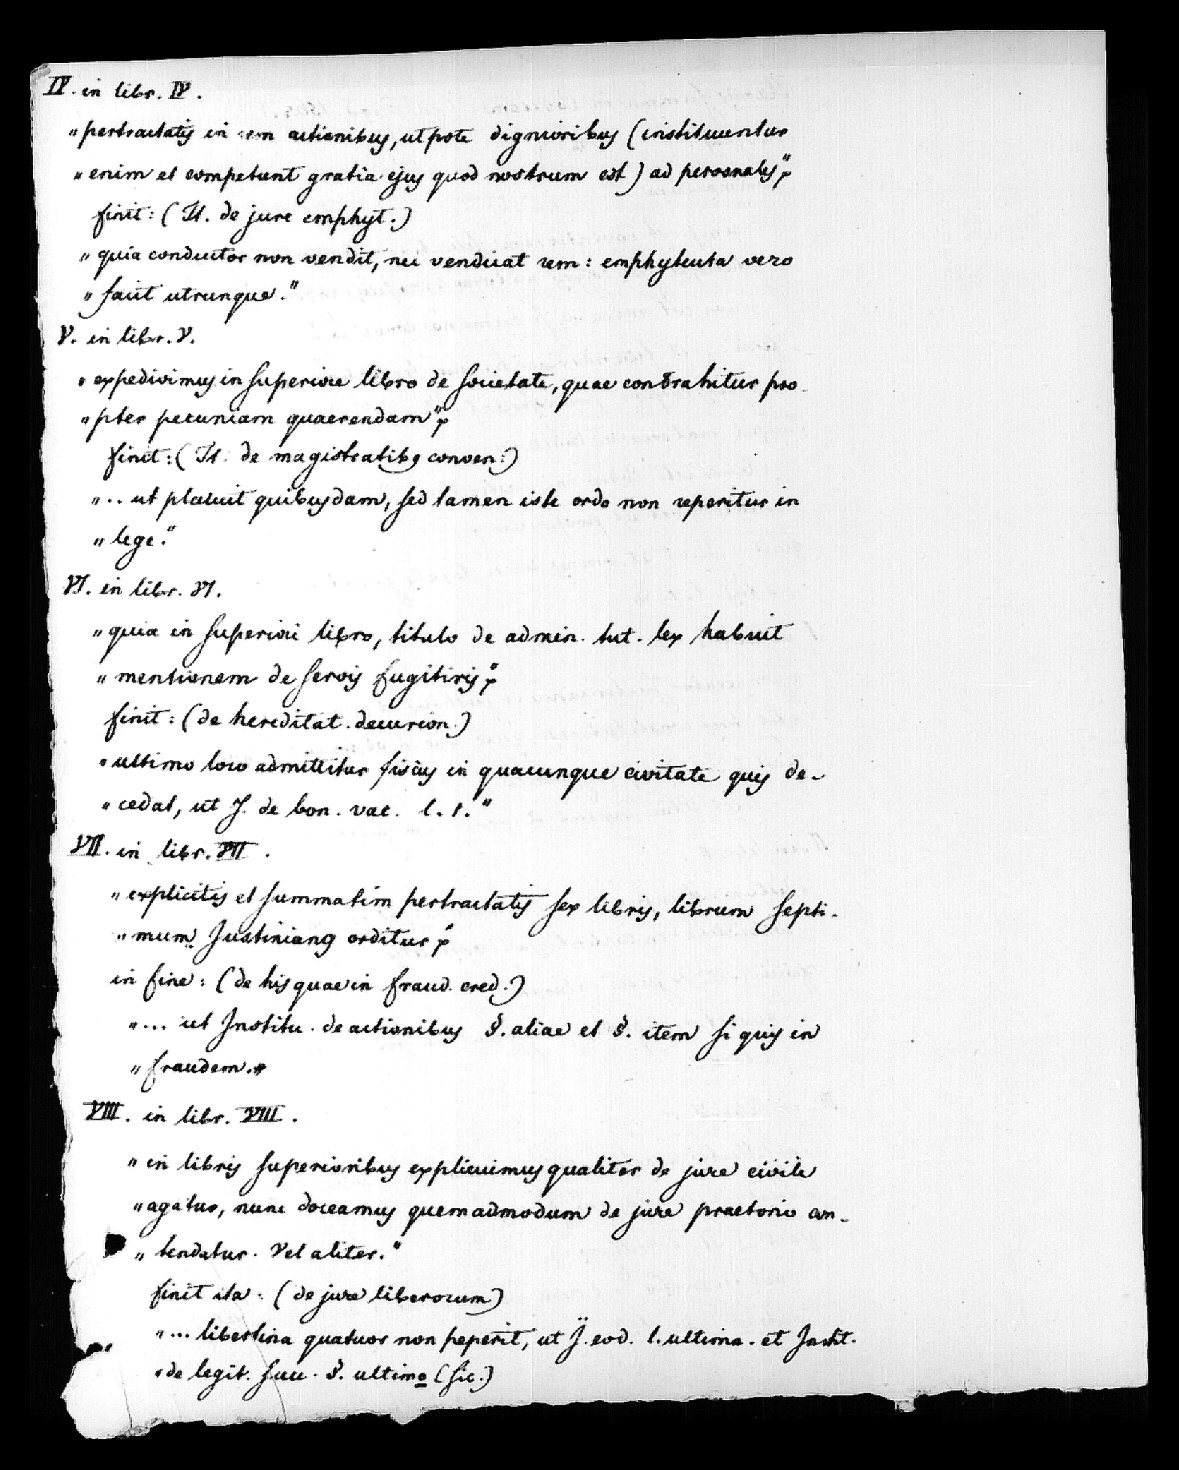 IV. in libr. IV.
„pertractatis in rem actionibus, utpote dignioribus (instituuntur
„enim et competunt gratia ejus quod nostrum est) ad personales“,
finit: (Tt. de jure emphyt.)
„quia conductor non vendit, nec vendicat rem: emphyteuta vero
„facit utrunque.“
V. in libr. V.
„expedivimus in superiore libro de societate, quae contrahitur pro-
„pter pecuniam quaerendam“,
finit: (Tt. de magistratibus conven:)
„.. ut placuit quibusdam, sed tamen iste ordo non reperitur in
„lege.“
VI. in libr. VI.
„quia in superiori libro, titulo de admin. tut. lex habuit
„mentionem de servis fugitivis“,
finit: (de hereditat. decurion.)
„ultimo loco admittitur fiscus in quacunque civitate quis de-
„cedat, ut J. de bon. vac. l. 1.“
VII. in libr. VII.
„explicitis et summatim pertractatis sex libris, librum septi-
„mum Justinianus orditur“,
in fine: (de his quae in fraud. cred.)
„... ut Institu. de actionibus §. aliae et §. item si quis in
„fraudem.“
VIII. in libr. VIII.
„in libris superioribus explicuimus qualiter de jure civili
„agatur, nunc doceamus quemadmodum de jure praetorio con-
„tendatur. Vel aliter.“
finit ita: (de jure liberorum)
„... libertina quatuor non peperit, ut J. eod. l. ultima. et Instit.
„de legit. succ. §. ultimo (sic.)